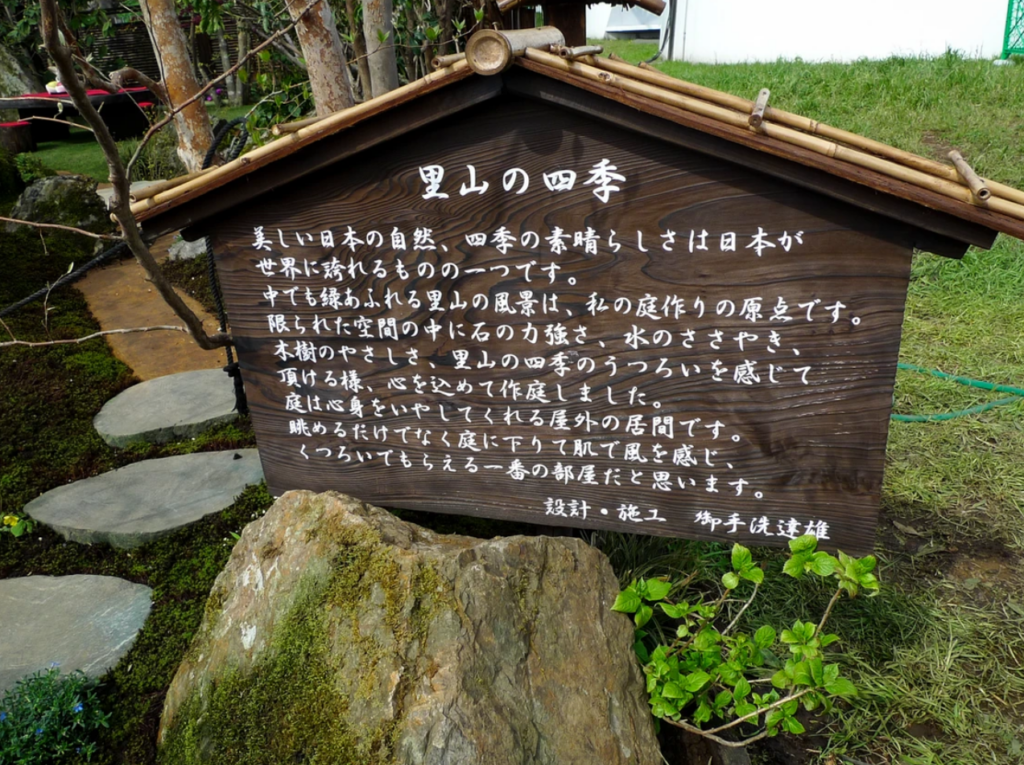 里山の四季
美しい日本の自然、四季の素晴らしさは日本が
世界に誇れるものの一つです。
中でも緑あふれる里山の風景は、私の庭作りの原点です。
限られた空間の中に石の力強さ、水のささやき、
木樹のやさしさ、里山の四季のうつろいを感じて
頂ける様、心を込めて作庭しました。
庭は心身をいやしてくれる屋外の居間です。
眺めるだけでなく庭に下りて肌で風を感じ、
くつろいでもらえる一番の部屋だと思います。
設計・施工 御手洗達雄